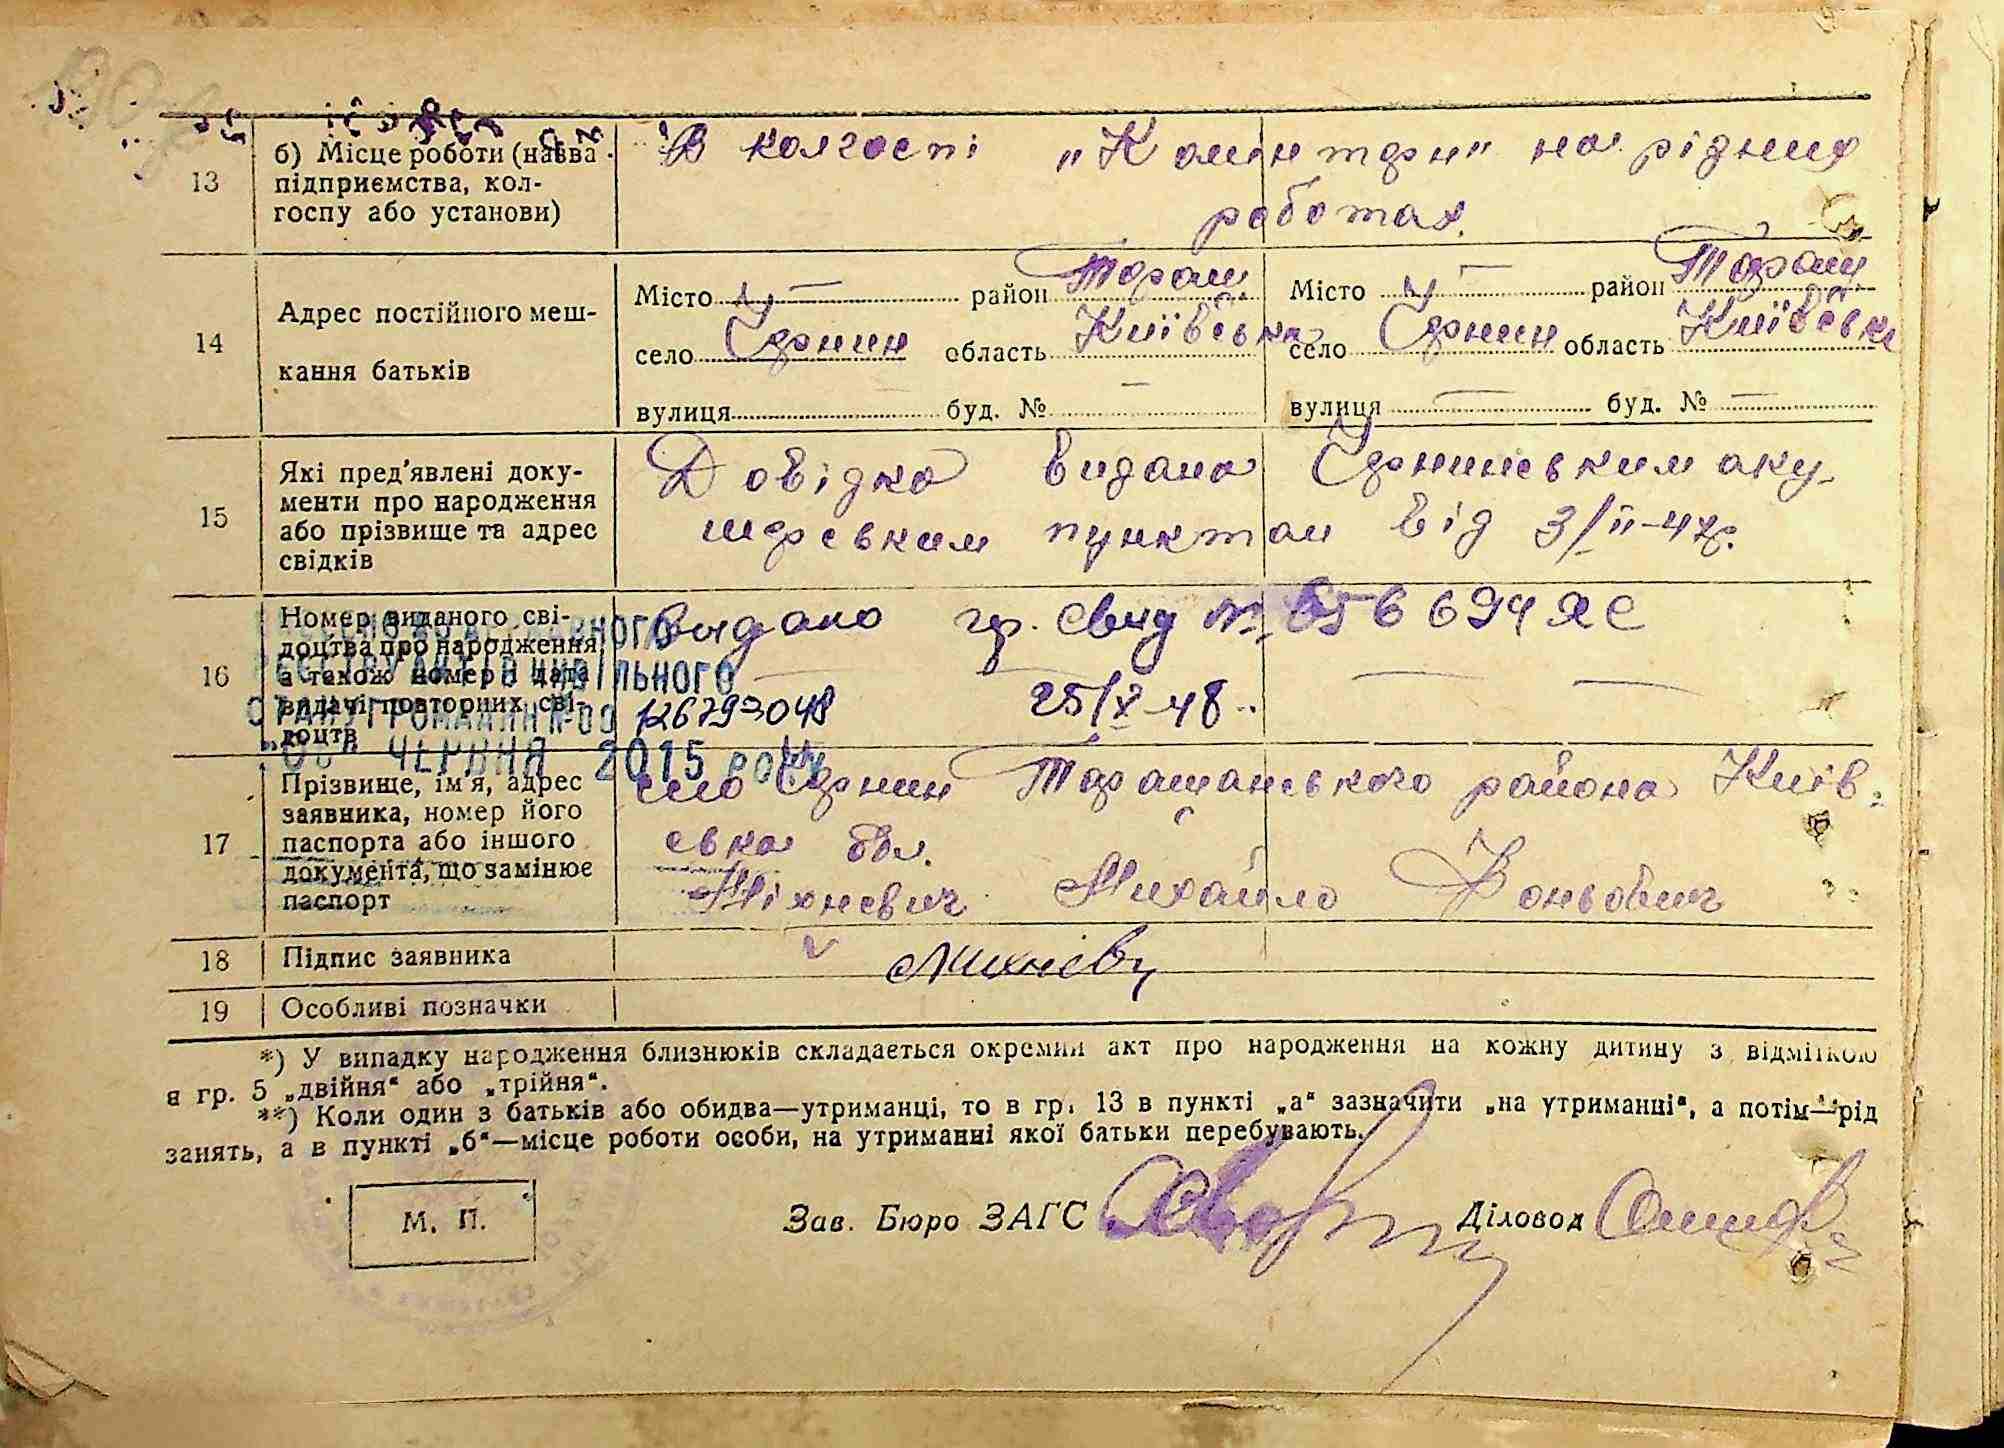 13
б) Місце роботи (назва
підприємства, кол-
госпу або установи)
В колгоспі "Комінтерн" на рідних
роботах.
14
Адрес постійного меш-
кання батьків
Місто — район Таращ.
село Чернин область Київська
вулиця буд. № —
Місто — район Таращ.
село Чернин область Київська
вулиця — буд. № —
15
Які пред'явлені доку-
менти про народження
або прізвище та адрес
свідків
Довідка видана Чернинським аку-
шерським пунктом від 3/II-47р.
16
Номер виданого сві-
доцтва про народження
а також номер і дата
видачі повторних сві-
доцтв
Видано гр. Свид № 656694 ЯС
25/X-48
ДЕРЖАВНОГО
РЕЄСТРУ АКТІВ ЦИВІЛЬНОГО
СТАНУ ГРОМАДЯН № 00 126793048
ЧЕРВНЯ 2015 року
17
Прізвище, ім'я, адрес
заявника, номер його
паспорта або іншого
документа, що замінює
паспорт
село Чернин Таращанського района Київ-
ська обл.
Міхневич Михайло
18
Підпис заявника
v
19
Особливі позначки
*) У випадку народження близнюків складається окремий акт про народження на кожну дитину з відміткою
в гр. 5 „двійня“ або „трійня“.
**) Коли один з батьків або обидва—утриманці, то в гр. 13 в пункті „а“ зазначити „на утриманні“, а потім—рід
занять, а в пункті „б“—місце роботи особи, на утриманні якої батьки перебувають.
М. П.
Зав. Бюро ЗАГС
Діловод